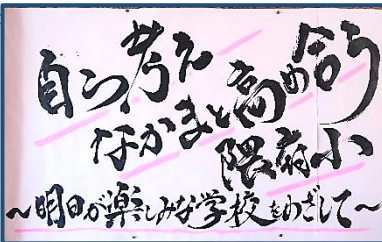 自ら考え
なかまと高め合う
隈府小
〜明日が楽しみな学校をめざして〜